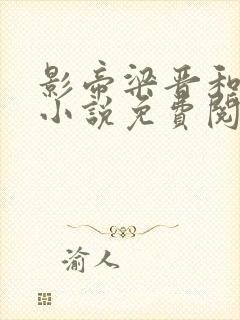 影帝梁晋和
小说免費閱
渝人